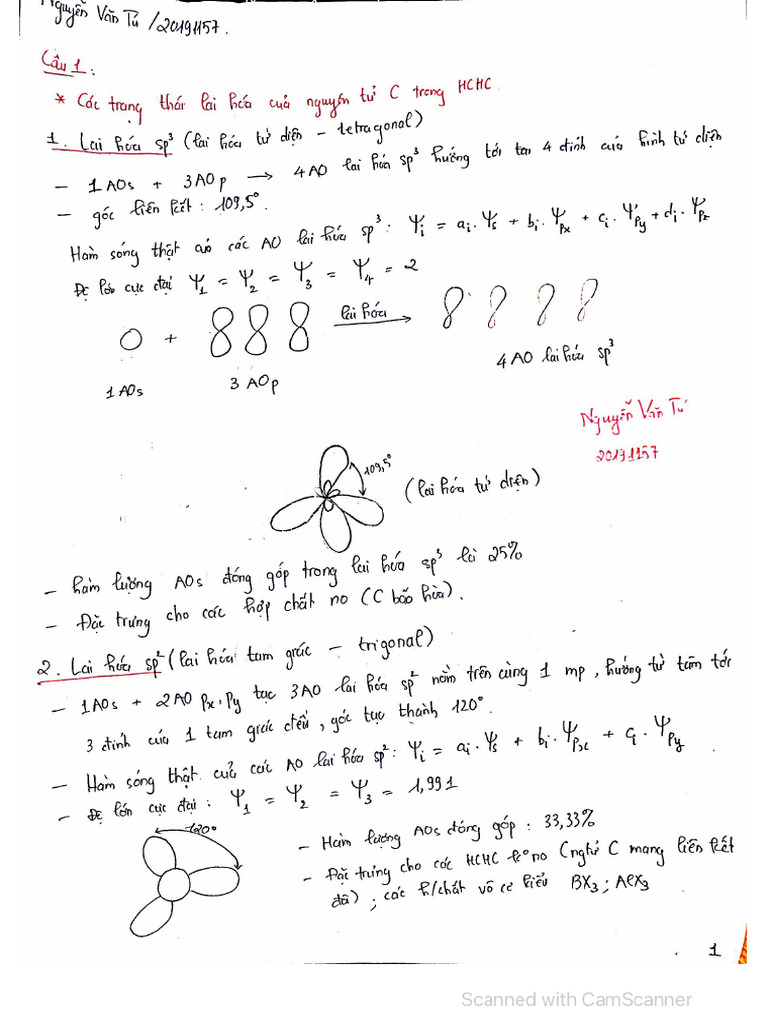 Nguyễn Văn Tú / 20191157.
Câu 1:
* Các trạng thái lai hóa của nguyên tử C trong HCHC
1. Lai hóa sp³ (lai hóa tứ diện – tetragonal)
– 1AOs + 3AOp → 4AO lai hóa sp³ hướng tới 4 đỉnh của hình tứ diện
– góc liên kết: 109,5°.
Hàm sóng thật các AO lai hóa sp³: Ψi = ai.Ψs + bi.ΨPx + ci.ΨPy + di.ΨPz
Độ lớn cực đại Ψ1 = Ψ2 = Ψ3 = Ψ4 = 2
+ lai hóa
1AOs 3 AOp 4 AO lai hóa sp³
Nguyễn Văn Tú
20191157
109,5°
(lai hóa tứ diện)
– hàm lượng AOs đóng góp trong lai hóa sp³ là 25%
– Đặc trưng cho các hợp chất no (C bão hòa).
2. Lai hóa sp² (lai hóa tam giác – trigonal)
– 1AOs + 2AO Px, Py tạo 3AO lai hóa sp² nằm trên cùng 1 mp, hướng từ tâm tới
3 đỉnh của 1 tam giác đều, góc tạo thành 120°.
– Hàm sóng thật của các AO lai hóa sp²: Ψi = ai.Ψs + bi.ΨPx + ci.ΨPy
– Độ lớn cực đại: Ψ1 = Ψ2 = Ψ3 = 1,991
120°
– Hàm lượng AOs đóng góp: 33,33%
– Đặc trưng cho các HCHC k° no (ngtử C mang liên kết
đôi); các h/chất vô cơ kiểu BX3; AlX3
1
Scanned with CamScanner